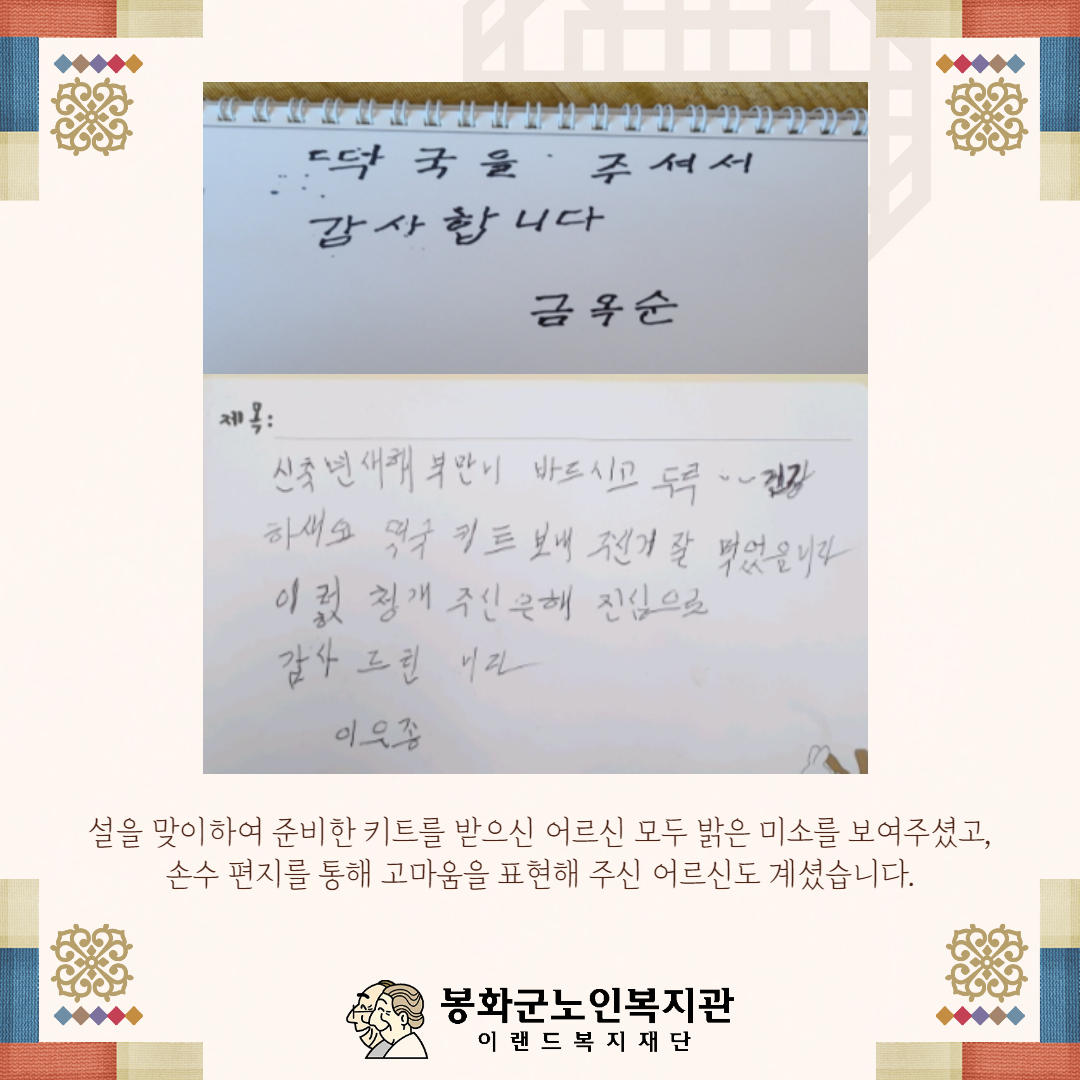 떡국을 주셔서
감사합니다
금옥순
제목:
신축년새해 복만니 바드시고 두루 건강
하새요 떡국 키트 보내 주신거 잘 먹었읍니다
이렇 주신은해 진심으로
감사 드린 니다
이우종
설을 맞이하여 준비한 키트를 받으신 어르신 모두 밝은 미소를 보여주셨고,
손수 편지를 통해 고마움을 표현해 주신 어르신도 계셨습니다.
봉화군노인복지관
이랜드복지재단